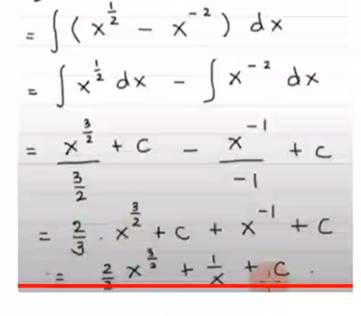 = ∫ ( x^{1/2} - x^{-2} ) dx
= ∫ x^{1/2} dx - ∫ x^{-2} dx
= x^{3/2} / (3/2) + C - x^{-1} / -1 + C
= 2/3 . x^{3/2} + C + x^{-1} + C
= 2/3 x^{3/2} + 1/x + C .